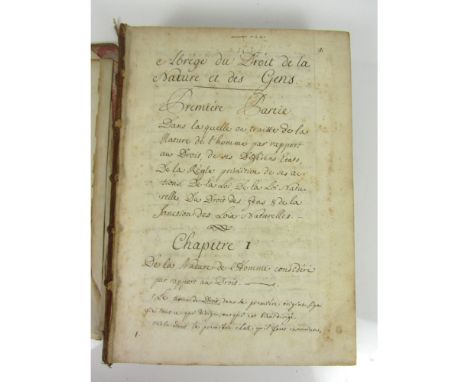 Abregé du Droit de la
Nature et des Gens.
Premiere Partie
Dans laquelle on traitte de la
Nature de l'homme par rapport
au Droit de ses Differens Etats,
De la Regle primitive de ses ac-
tions De la Loi De la Loi Natu-
relle Du Droit des Gens & de la
Sanction des Loix Naturelles.
Chapitre I
De la Nature de l'Homme consideré
par rapport au Droit.
Le de Droit, dans le premier
que